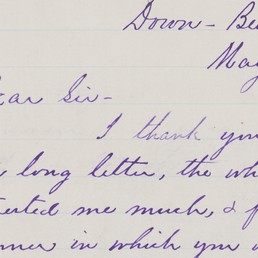 Down - Be
May
ear Sir -
I thank you
long letter, the wh
ested me much, & f
nner in which you